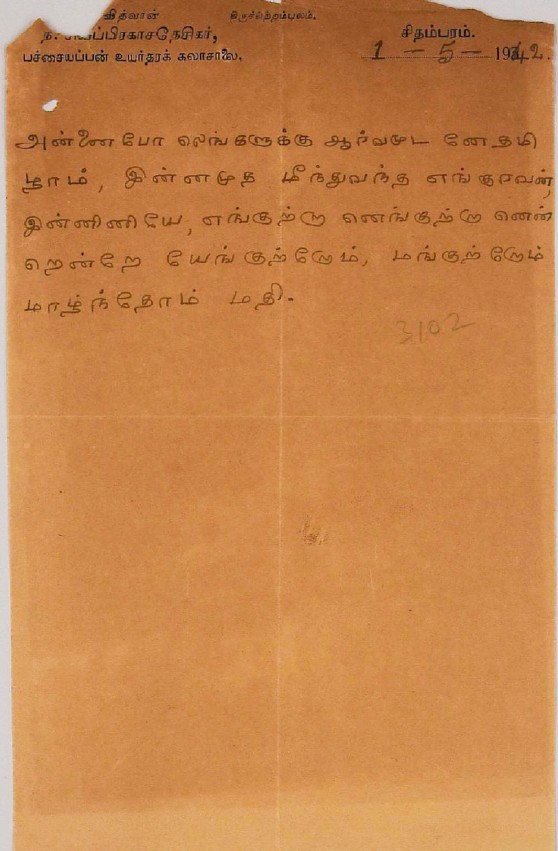 வித்வான் திருச்சிற்றம்பலம்.
ந. சிவப்பிரகாசதேசிகர், சிதம்பரம்.
பச்சையப்பன் உயர்தரக் கலாசாலை, 1 - 5 - 1942.
அன்னைபோ லெங்களுக்கு ஆர்வமுட னேதமி
ழாம், இன்னமுத மீந்துவந்த எங்குரவன்,
இன்னினியே, எங்குற்று னெங்குற்று னென்
றென்றே யேங்குற்றேம், மங்குற்றேம்
மாழ்ந்தோம் மதி.
3102